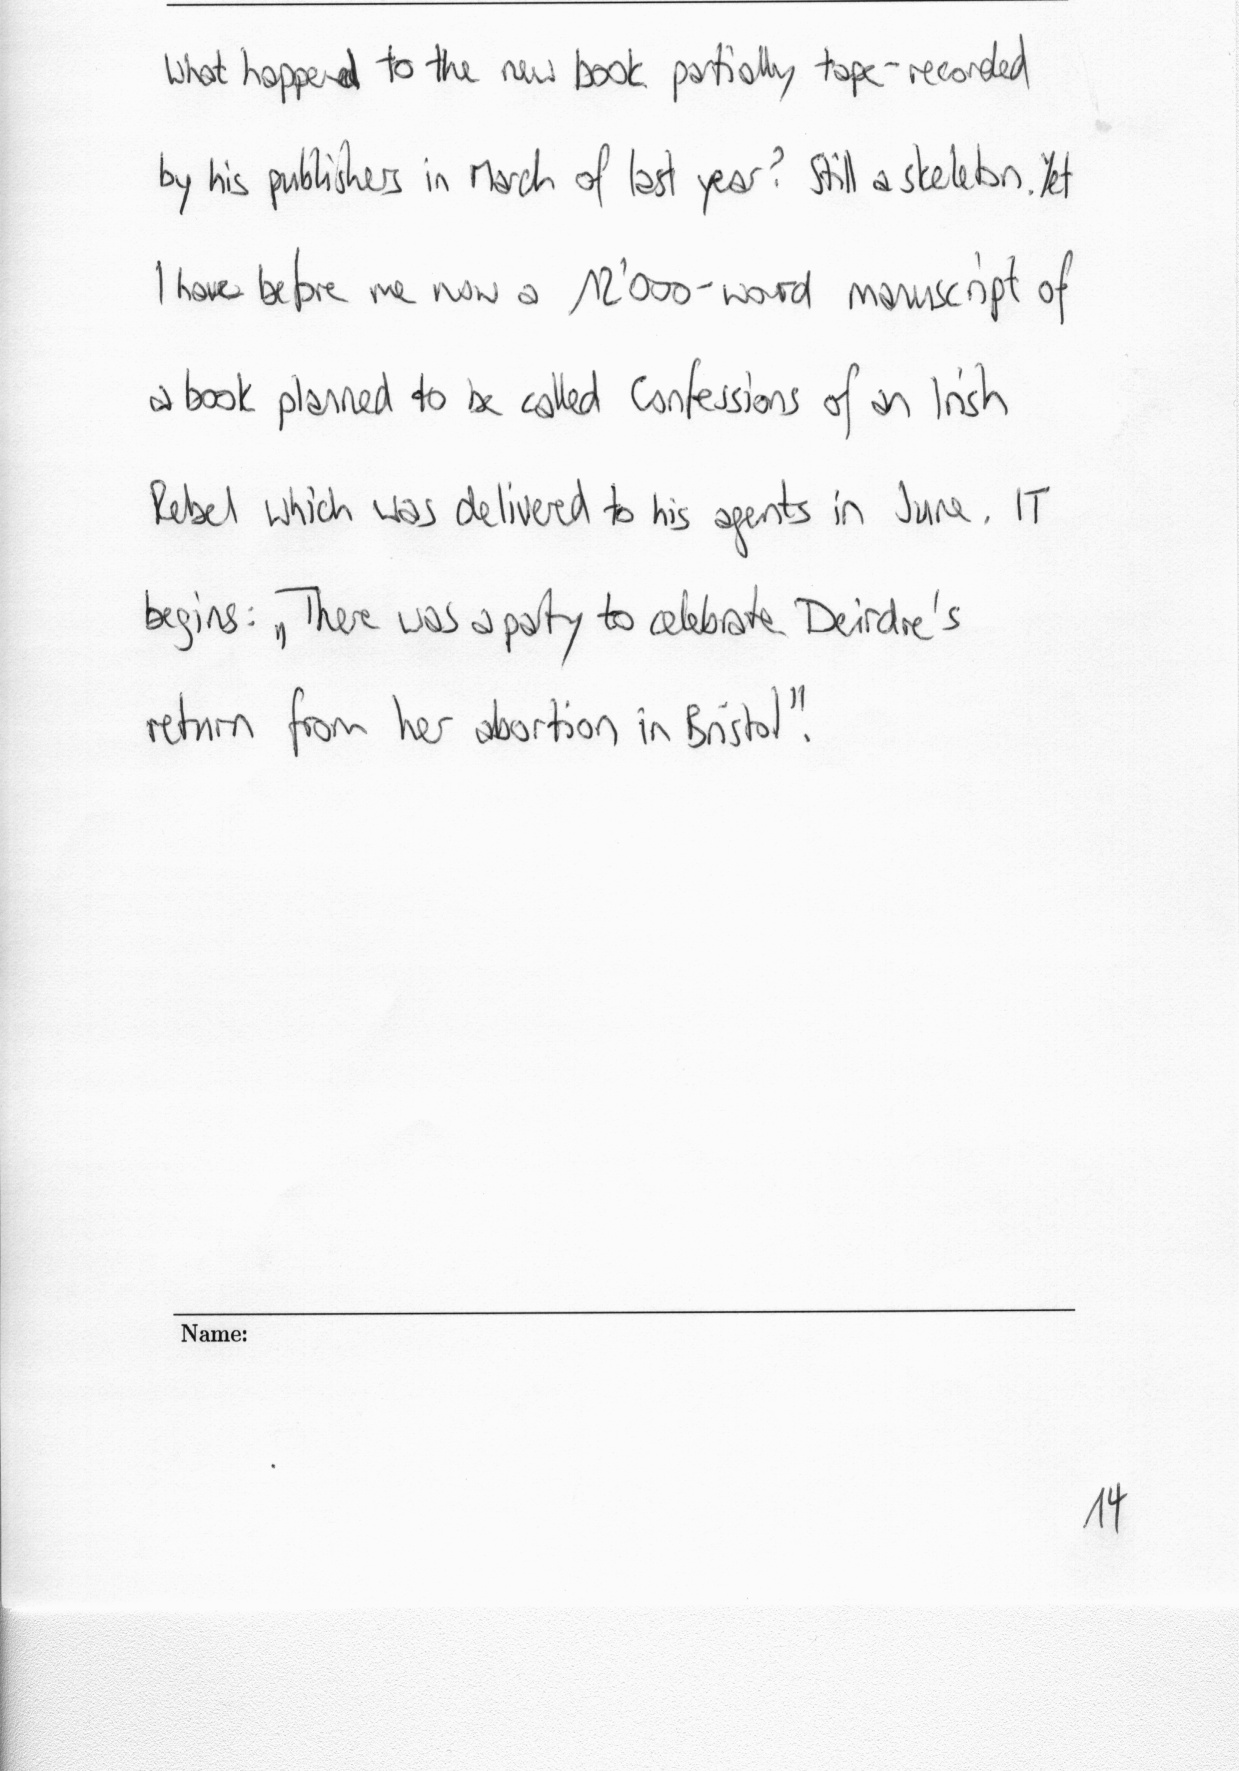 What happened to the new book partially tape-recorded
by his publishers in March of last year? Still a skeleton. Yet
I have before me now a 12'000-word manuscript of
a book planned to be called Confessions of an Irish
Rebel which was delivered to his agents in June. IT
begins: „There was a party to celebrate Deirdre's
return from her abortion in Bristol".
Name:
14